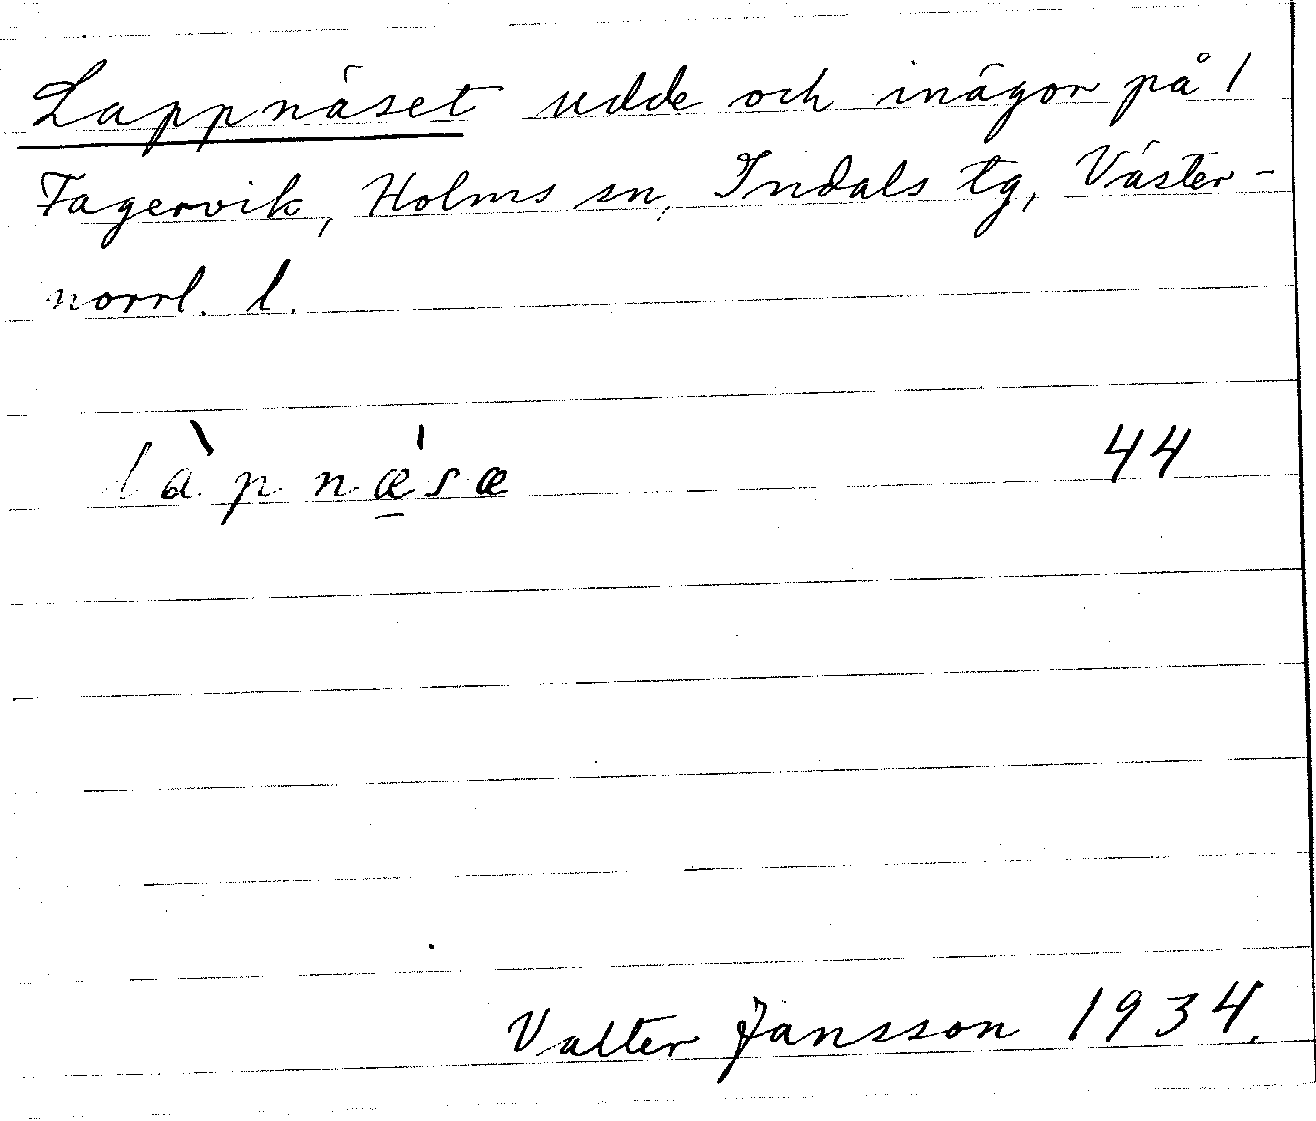 Lappnäset udde och inägor på 1
Fagervik, Holms sn, Indals tg, Väster-
norrl. l.
làpnǽ̱sæ 44
Valter Jansson 1934.